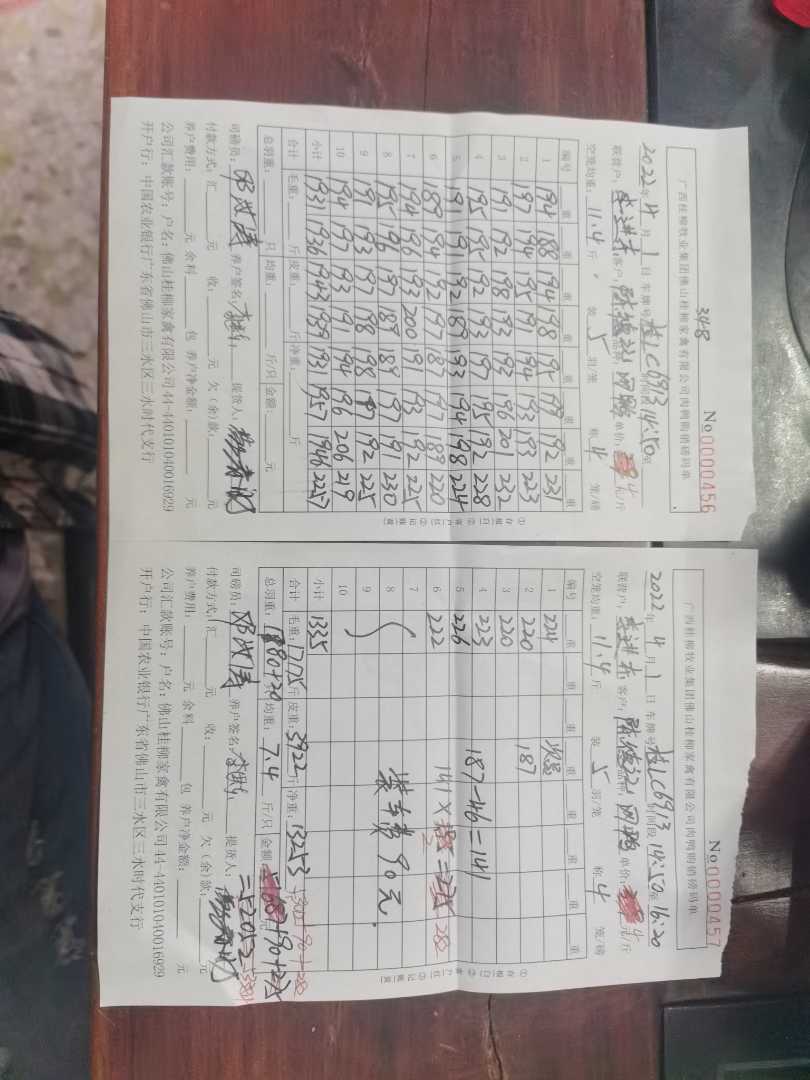 3448
广西桂柳牧业集团佛山桂柳家禽有限公司肉鸭购销磅码单
No 0000456
2022年 4 月 1 日 车牌号 桂LC6913 时间段 14:50至
联营户: 李进东 客户: 陈德 品种: 网鸭 单价: 4 元/斤
空笼均重: 11.4 斤 装 5 羽/笼 称 4 笼/磅
编号 重 重 重 重 重 重 重 重
1 194 188 194 198 195 179 192 231
2 197 194 195 191 194 193 193 223
3 191 192 198 193 193 196 201 232
4 195 195 192 193 197 195 192 228
5 191 191 192 189 193 194 198 224
6 189 194 192 197 187 197 189 220
7 194 196 193 200 191 193 192 225
8 195 196 197 189 189 197 191 230
9 191 193 197 198 198 197 192 225
10 194 197 193 191 194 196 206 219
小计 1931 1936 1943 1939 1931 1957 1946 2257
合计 毛重: 斤 皮重: 斤 净重: 斤
总羽重: 只 均重: 斤/只 金额: 元
司磅员: 养户签名: 提货人:
付款方式: 汇 元 收: 元 欠(余)款: 元
养户费用: 元 余料 包 养户净金额: 元
公司汇款账号: 户名: 佛山桂柳家禽有限公司 44-440101040016929
开户行: 中国农业银行广东省佛山市三水区三水时代支行
广西桂柳牧业集团佛山桂柳家禽有限公司肉鸭购销磅码单
No 0000457
2022年 4 月 1 日 车牌号 桂LC6913 时间段 14:50至 16:20
联营户: 李进东 客户: 陈德 品种: 网鸭 单价: 4 元/斤
空笼均重: 11.4 斤 装 5 羽/笼 称 4 笼/磅
编号 重 重 重 重 重 重 重 重
1 224
2 220 187
3 220
4 223 187-46=141
5 226
6 222 141×2=282
7
8 装车费90元.
9
10
小计 1335
合计 毛重: 17175 斤 皮重: 3922 斤 净重: 13253
总羽重: 1780+20 均重: 7.4 斤/只 金额
司磅员: 养户签名: 提货人:
付款方式: 汇 元 收: 元 欠(余)款:
养户费用: 元 余料 包 养户净金额: 元
公司汇款账号: 户名: 佛山桂柳家禽有限公司 44-440101040016929
开户行: 中国农业银行广东省佛山市三水区三水时代支行